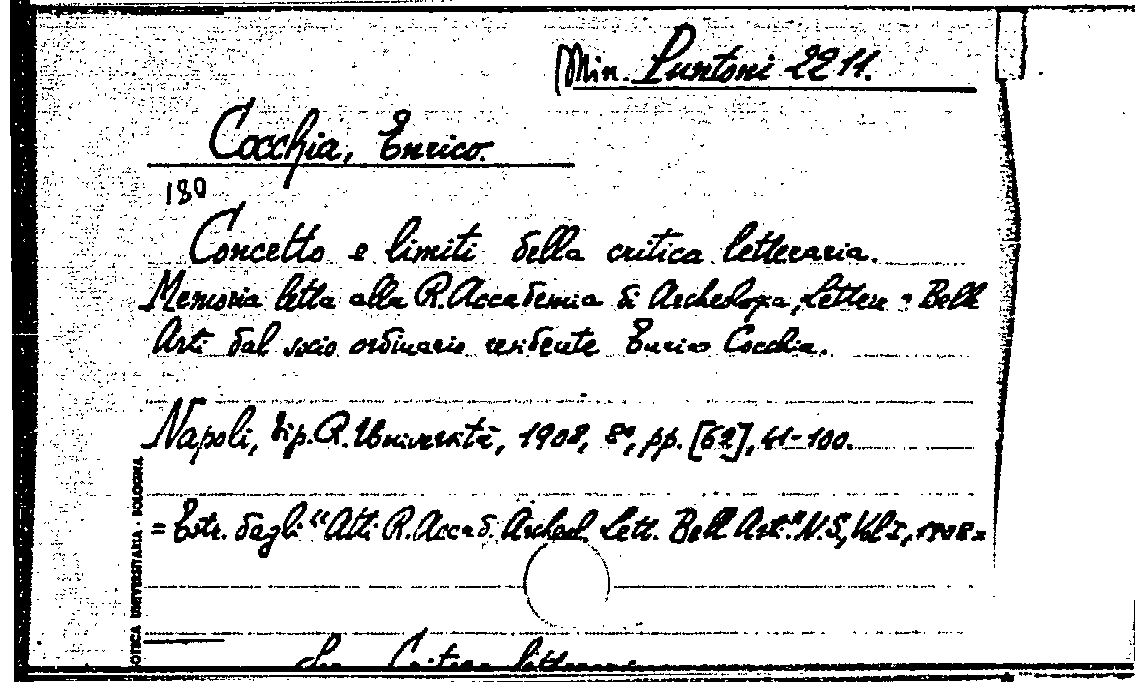 Min. Puntoni 2211.
Cocchia, Enrico.
180
Concetto e limiti della critica letteraria.
Memoria letta alla R. Accademia di Archeologia, Lettere e Belle
Arti dal socio ordinario residente Enrico Cocchia.
Napoli, Tip. R. Università, 1908, 8°, pp. [62], 41-100.
= Estr. dagli "Atti R. Accad. Archeol. Lett. Bell Art." N.S., Vol I, 1908 =
OTICA UNIVERSITARIA - BOLOGNA
Critica letteraria